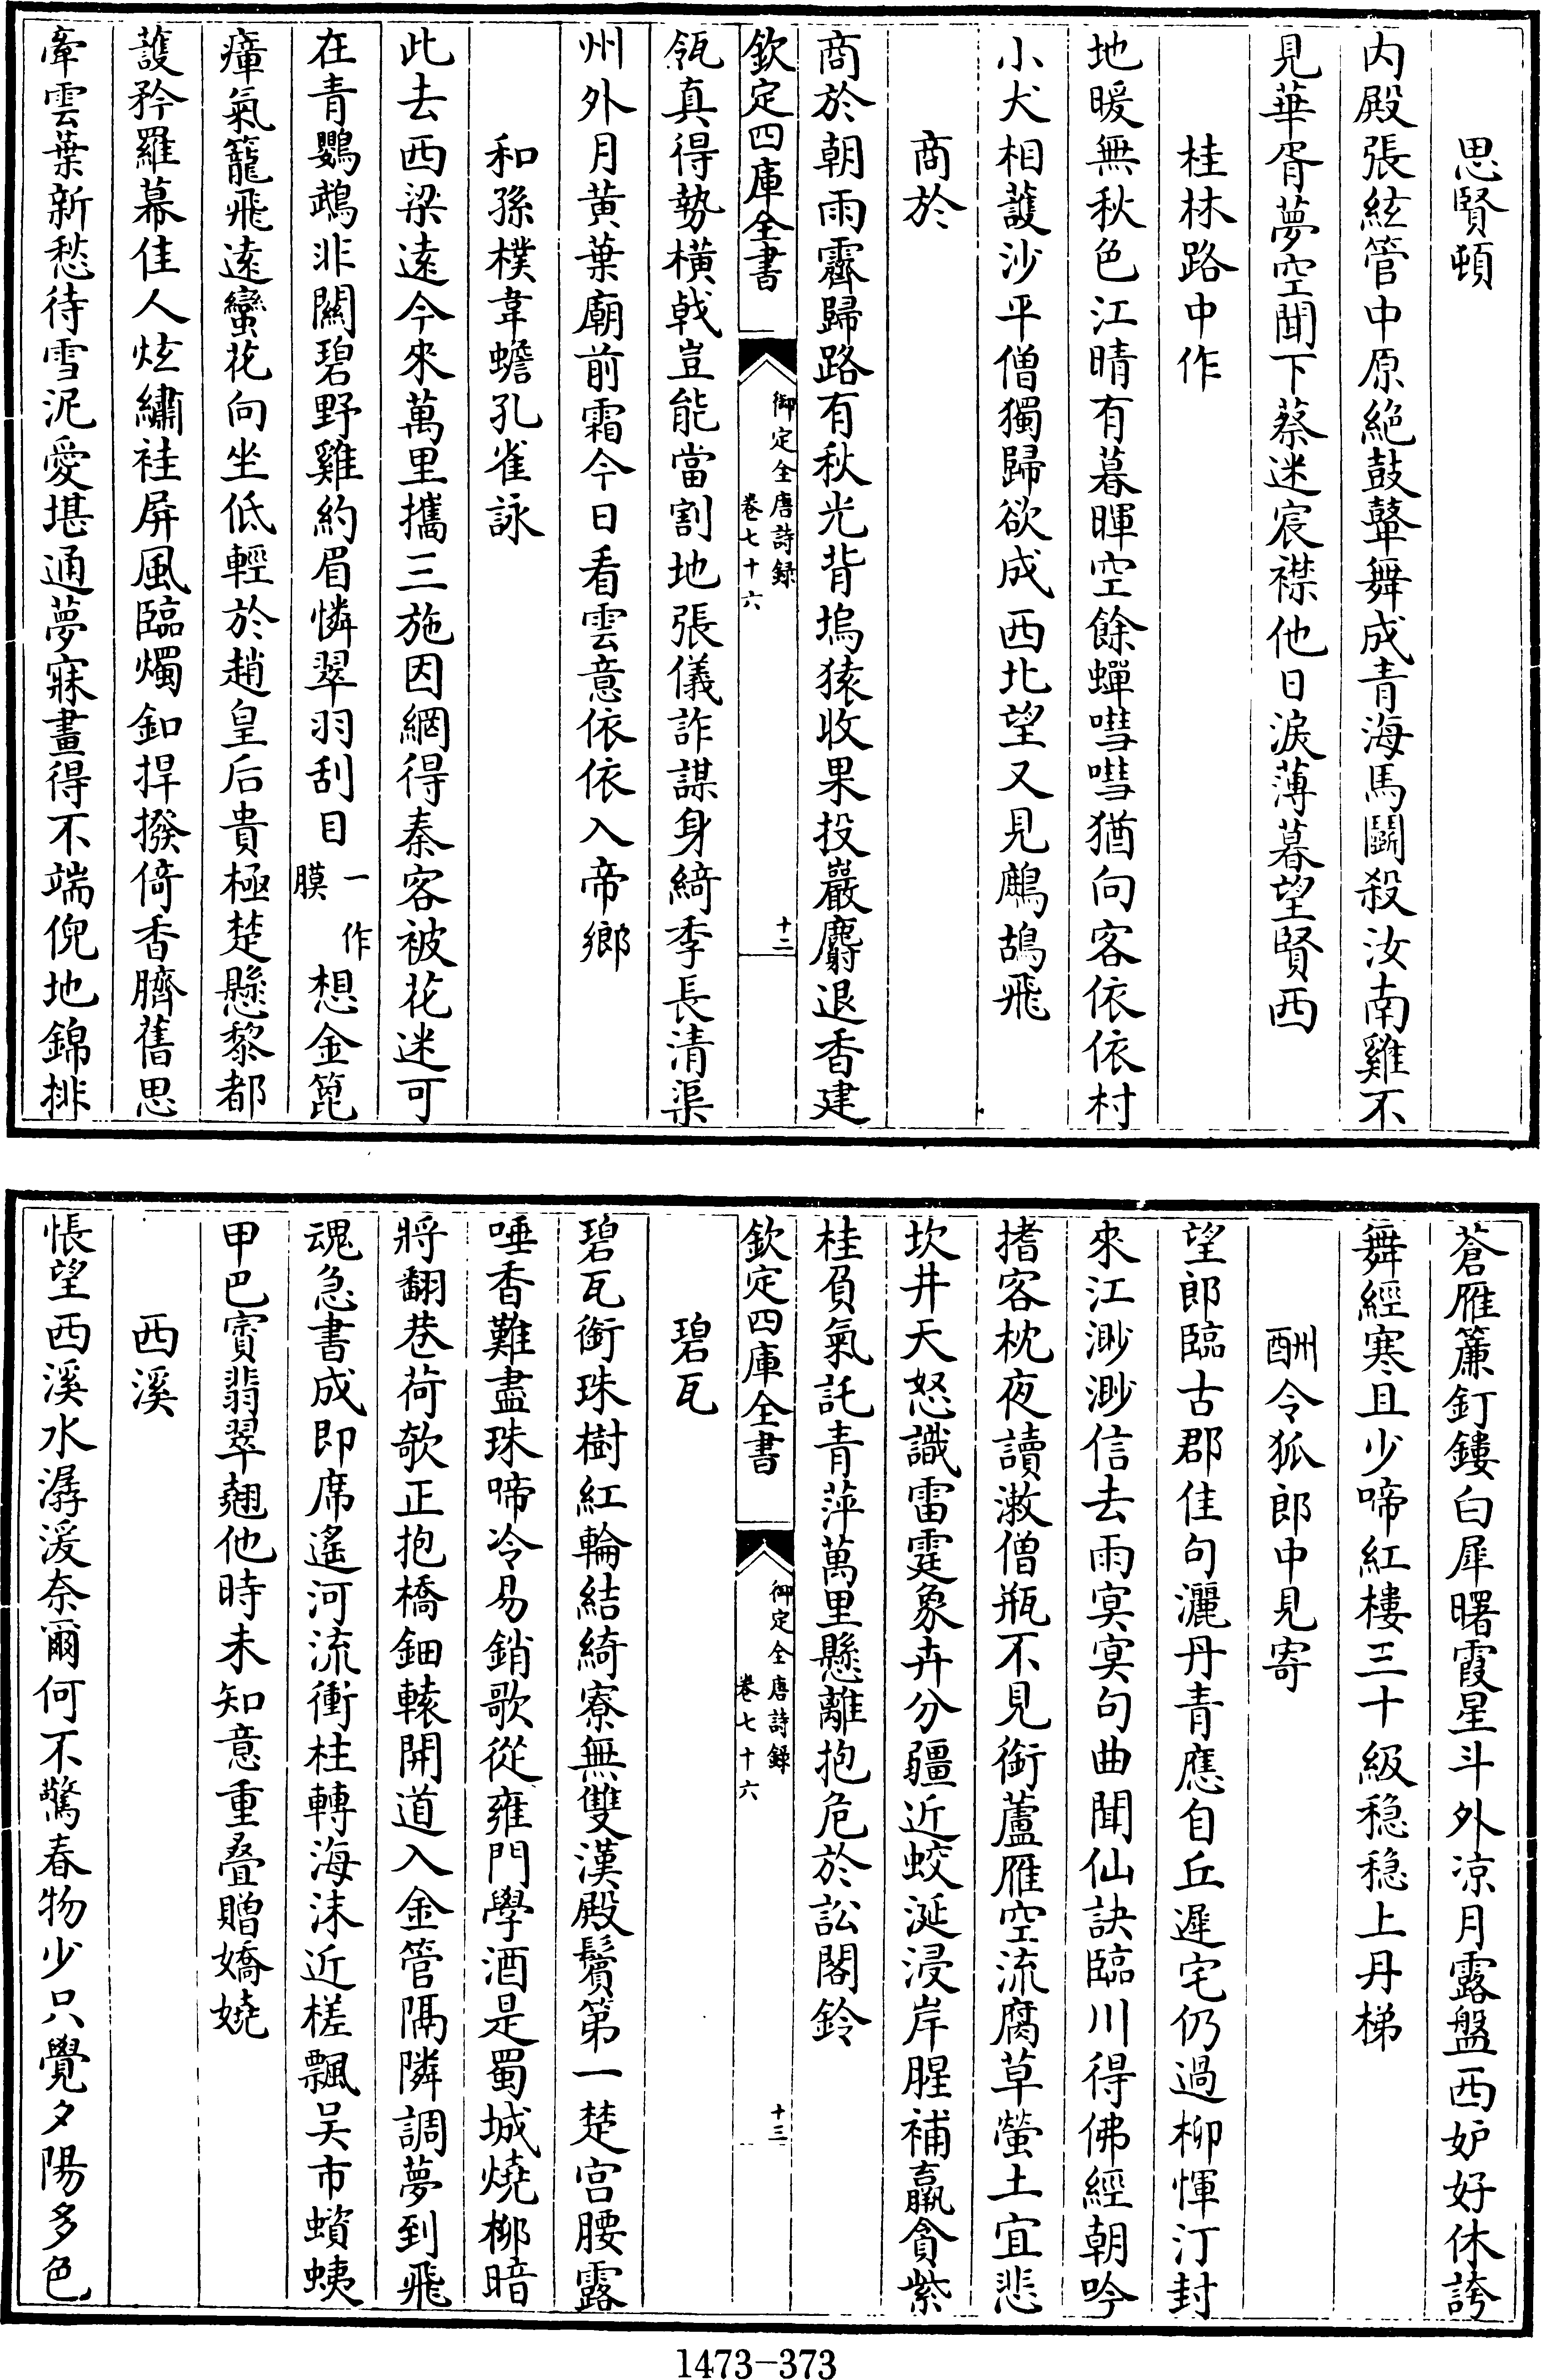 思賢頓
内殿張絃管中原絶鼓鼙舞成青海馬鬭殺汝南雞不
見華胥夢空聞下蔡迷宸襟他日淚薄暮望賢西
桂林路中作
地暖無秋色江晴有暮暉空餘蟬嘒嘒猶向客依依村
小犬相護沙平僧獨歸欲成西北望又見鷓鴣飛
商於
商於朝雨霽歸路有秋光背塢猿收果投巖麝退香建
欽定四庫全書
御定全唐詩録
卷七十六
十二
瓴真得勢橫戟豈能當割地張儀詐謀身綺季長清渠
州外月黄葉廟前霜今日看雲意依依入帝鄉
和孫樸韋蟾孔雀詠
此去西梁遠今來萬里攜三施因網得秦客被花迷可
在青鸚鵡非關碧野雞約眉憐翠羽刮目一作膜想金篦
瘴氣籠飛遠蠻花向坐低輕於趙皇后貴極楚懸黎都
護矜羅幕佳人炫繡袿屏風臨燭釦捍撥倚香臍舊思
牽雲葉新愁待雪泥愛堪通夢寐畫得不端倪地錦排
蒼雁簾釘鏤白犀曙霞星斗外涼月露盤西妒好休誇
舞經寒且少啼紅樓三十級穏穏上丹梯
酬令狐郎中見寄
望郎臨古郡佳句灑丹青應自丘遲宅仍過柳惲汀封
來江渺渺信去雨冥冥句曲聞仙訣臨川得佛經朝吟
搘客枕夜讀漱僧瓶不見銜蘆雁空流腐草螢土宜悲
坎井天怒識雷霆象卉分疆近蛟涎浸岸腥補羸貪紫
桂負氣託青萍萬里懸離抱危於訟閤鈴
欽定四庫全書
御定全唐詩録
卷七十六
十三
碧瓦
碧瓦銜珠樹紅輪結綺寮無雙漢殿鬢第一楚宫腰露
唾香難盡珠啼冷易銷歌從雍門學酒是蜀城燒栁暗
將翻巷荷欹正抱橋鈿轅開道入金管隔隣調夢到飛
魂急書成即席遙河流衝柱轉海沫近槎飄吴市蠀蛦
甲巴賨翡翠翹他時未知意重叠贈嬌嬈
西溪
悵望西溪水潺湲奈爾何不驚春物少只覺夕陽多色
1473-373